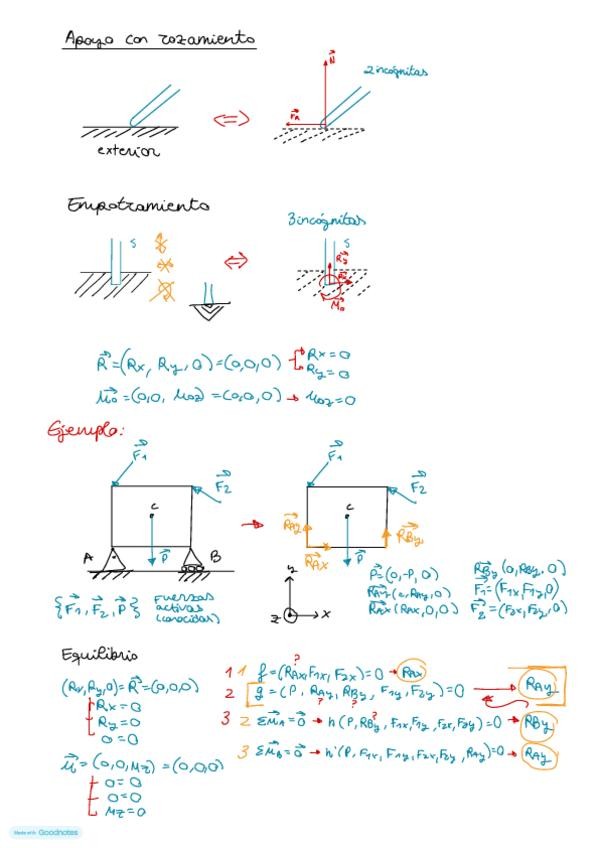 Apoyo con rozamiento
N
2 incógnitas
FR
exterior
Empotramiento
3 incógnitas
S
S
Ry
Rx
Mo
R=(Rx, Ry, 0)=(0,0,0) Rx=0
Ry=0
Mo=(0,0, Moz)=(0,0,0) → Moz=0
Ejemplo:
F1
F1
F2
F2
C
C
RAy
RBy
A
P
B
RAx
P
{F1, F2, P} Fuerzas
activas
(conocidas)
y
z
x
P=(0,-P,0)
RAy(0,RAy,0)
RAx(RAx,0,0)
RBy(0,RBy,0)
F1=(F1x,F1y,0)
F2=(F2x,F2y,0)
Equilibrio
(Rx,Ry,0)=R=(0,0,0)
Rx=0
Ry=0
0=0
Mo=(0,0,Mz)=(0,0,0)
0=0
0=0
Mz=0
?
1 1 f=(RAx,F1x,F2x)=0 → RAx
2 g=(P, RAy, RBy, F1y, F2y)=0 RAy
? ?
?
3 2 ΣMA=0 → h(P,RBy,F1x,F1y,F2x,F2y)=0 → RBy
3 ΣMB=0 → h'(P,F1x,F1y,F2x,F2y,RAy)=0 → RAy
Made with Goodnotes